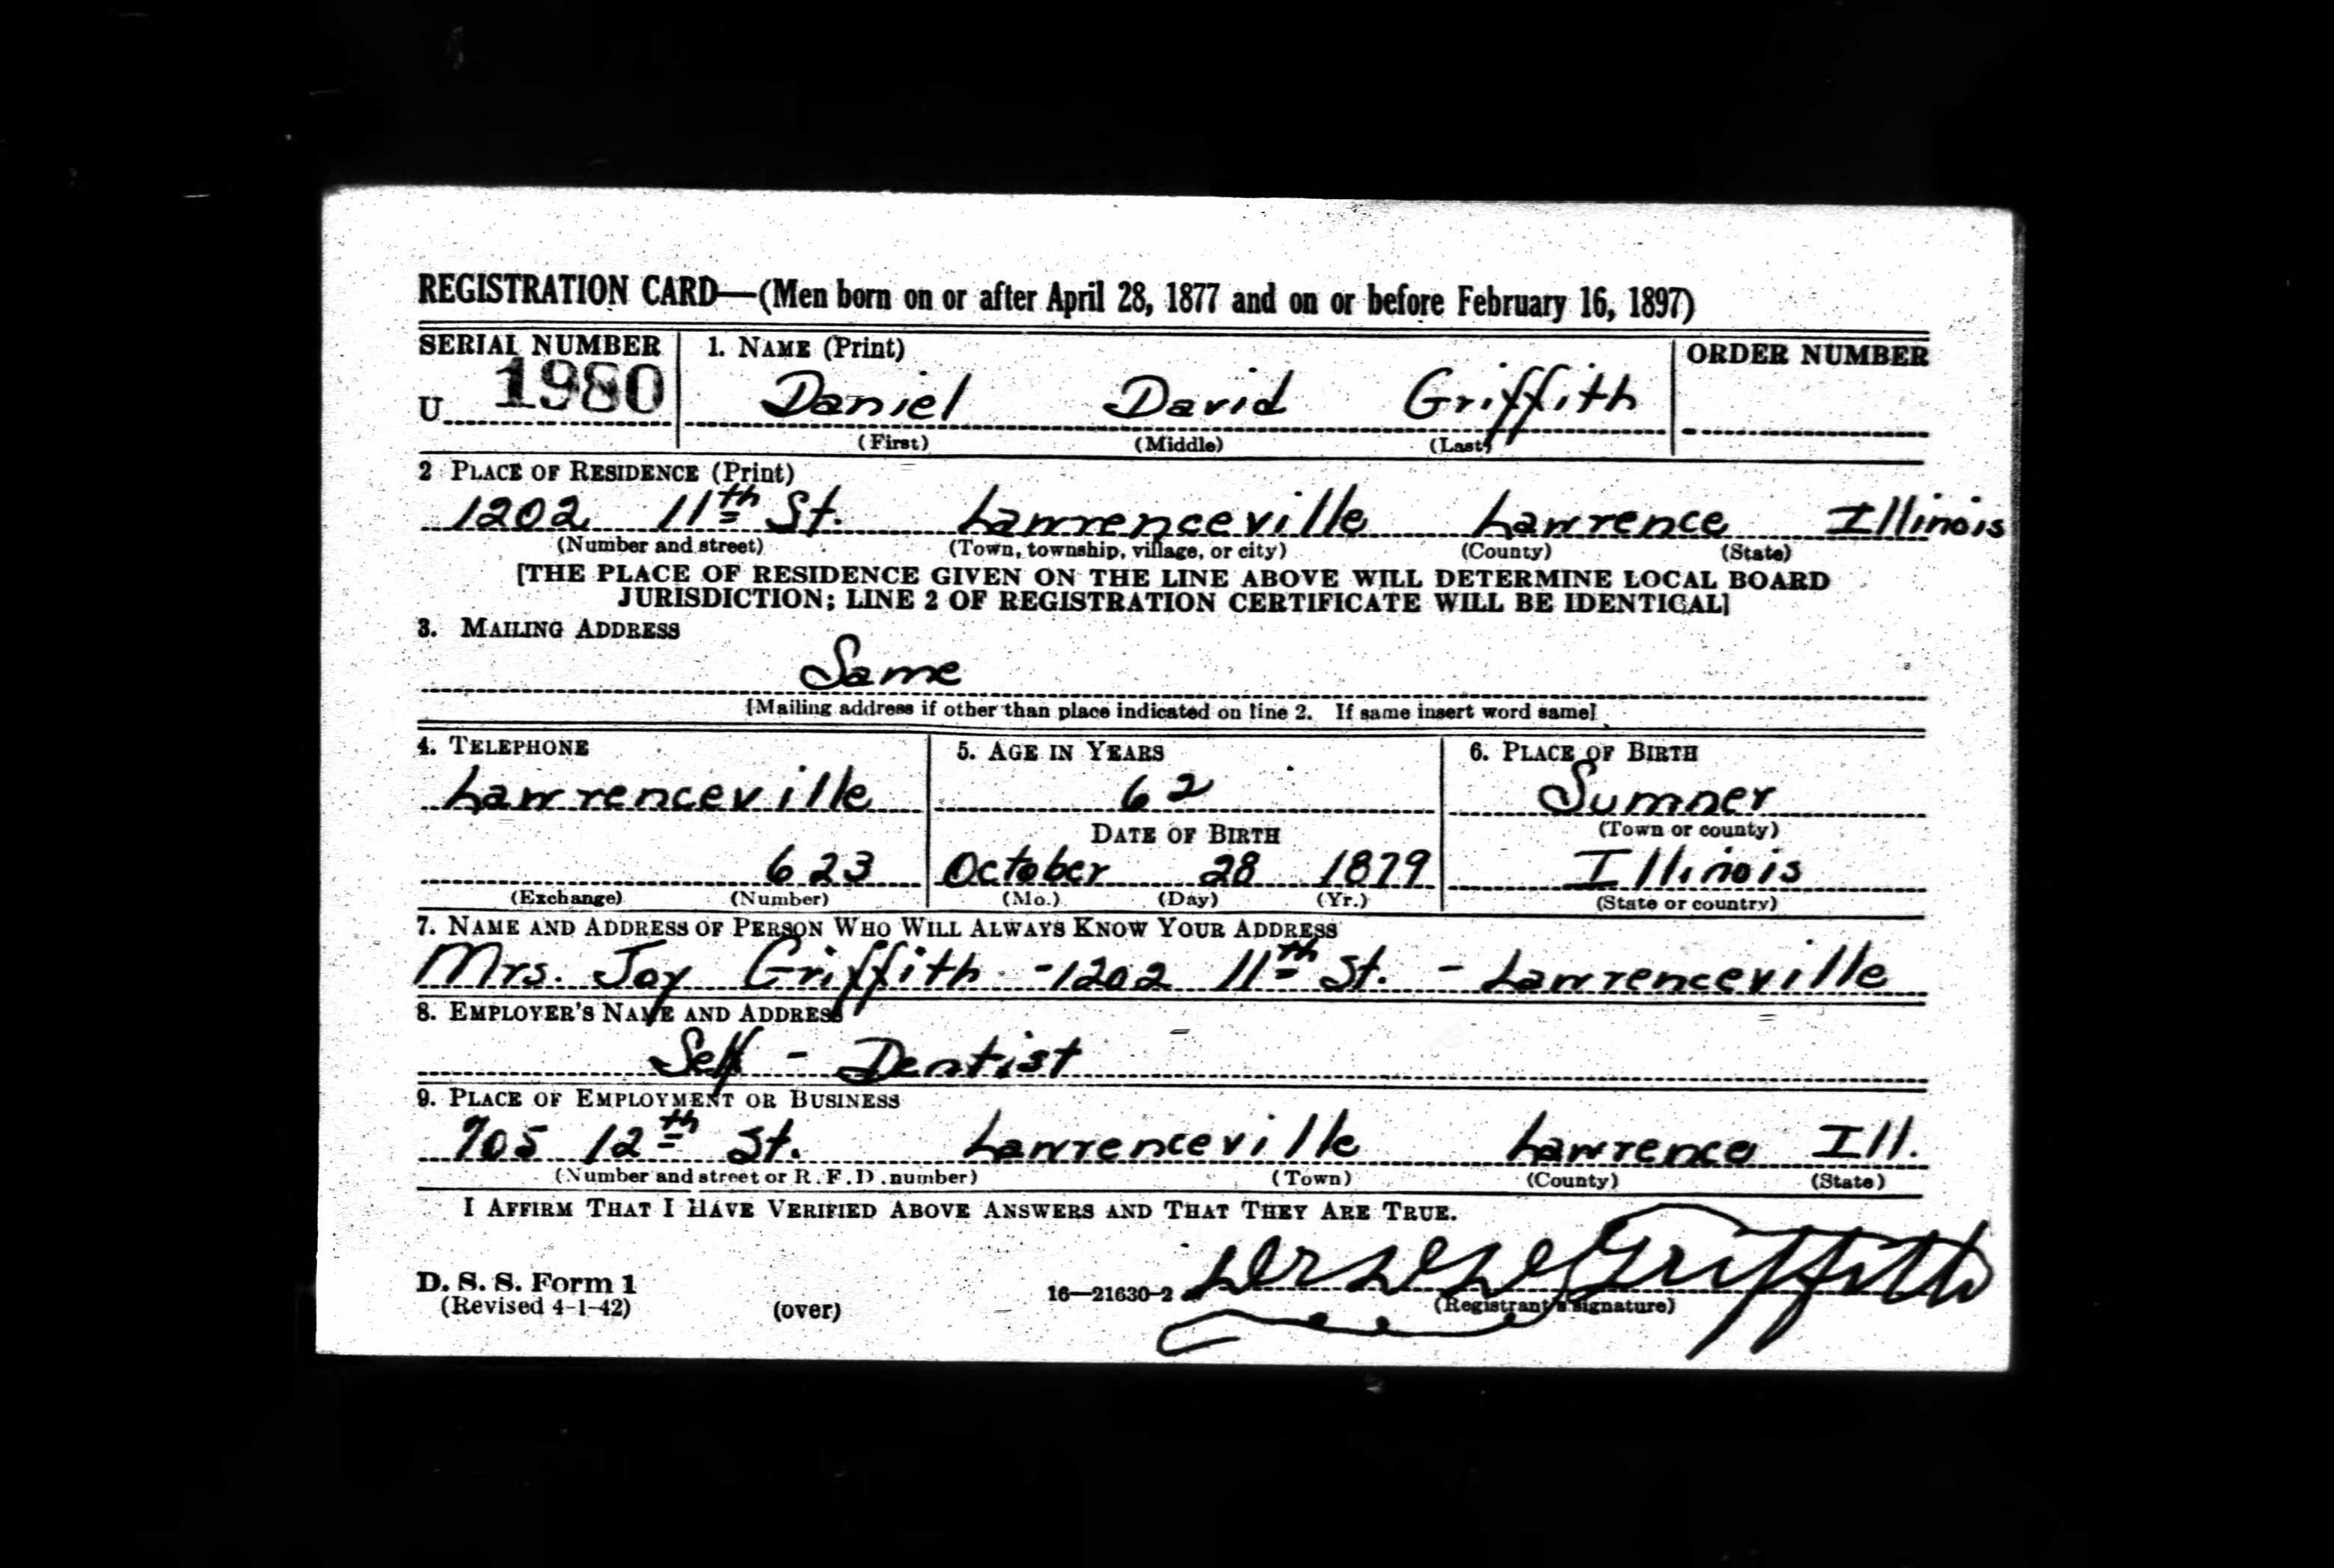 REGISTRATION CARD—(Men born on or after April 28, 1877 and on or before February 16, 1897)
SERIAL NUMBER 1. NAME (Print) ORDER NUMBER
U 1980 Daniel David Griffith
(First) (Middle) (Last)
2 PLACE OF RESIDENCE (Print)
1202 11th St. Lawrenceville Lawrence Illinois
(Number and street) (Town, township, village, or city) (County) (State)
[THE PLACE OF RESIDENCE GIVEN ON THE LINE ABOVE WILL DETERMINE LOCAL BOARD
JURISDICTION; LINE 2 OF REGISTRATION CERTIFICATE WILL BE IDENTICAL]
3. MAILING ADDRESS
Same
[Mailing address if other than place indicated on line 2. If same insert word same]
4. TELEPHONE 5. AGE IN YEARS 6. PLACE OF BIRTH
Lawrenceville 62 Sumner
DATE OF BIRTH (Town or county)
623 October 28 1879 Illinois
(Exchange) (Number) (Mo.) (Day) (Yr.) (State or country)
7. NAME AND ADDRESS OF PERSON WHO WILL ALWAYS KNOW YOUR ADDRESS
Mrs. Joy Griffith - 1202 11th St. - Lawrenceville
8. EMPLOYER'S NAME AND ADDRESS
Self - Dentist
9. PLACE OF EMPLOYMENT OR BUSINESS
705 12th St. Lawrenceville Lawrence Ill.
(Number and street or R. F. D. number) (Town) (County) (State)
I AFFIRM THAT I HAVE VERIFIED ABOVE ANSWERS AND THAT THEY ARE TRUE.
Griffith
D. S. S. Form 1 16—21630-2 (Registrant's signature)
(Revised 4-1-42) (over)